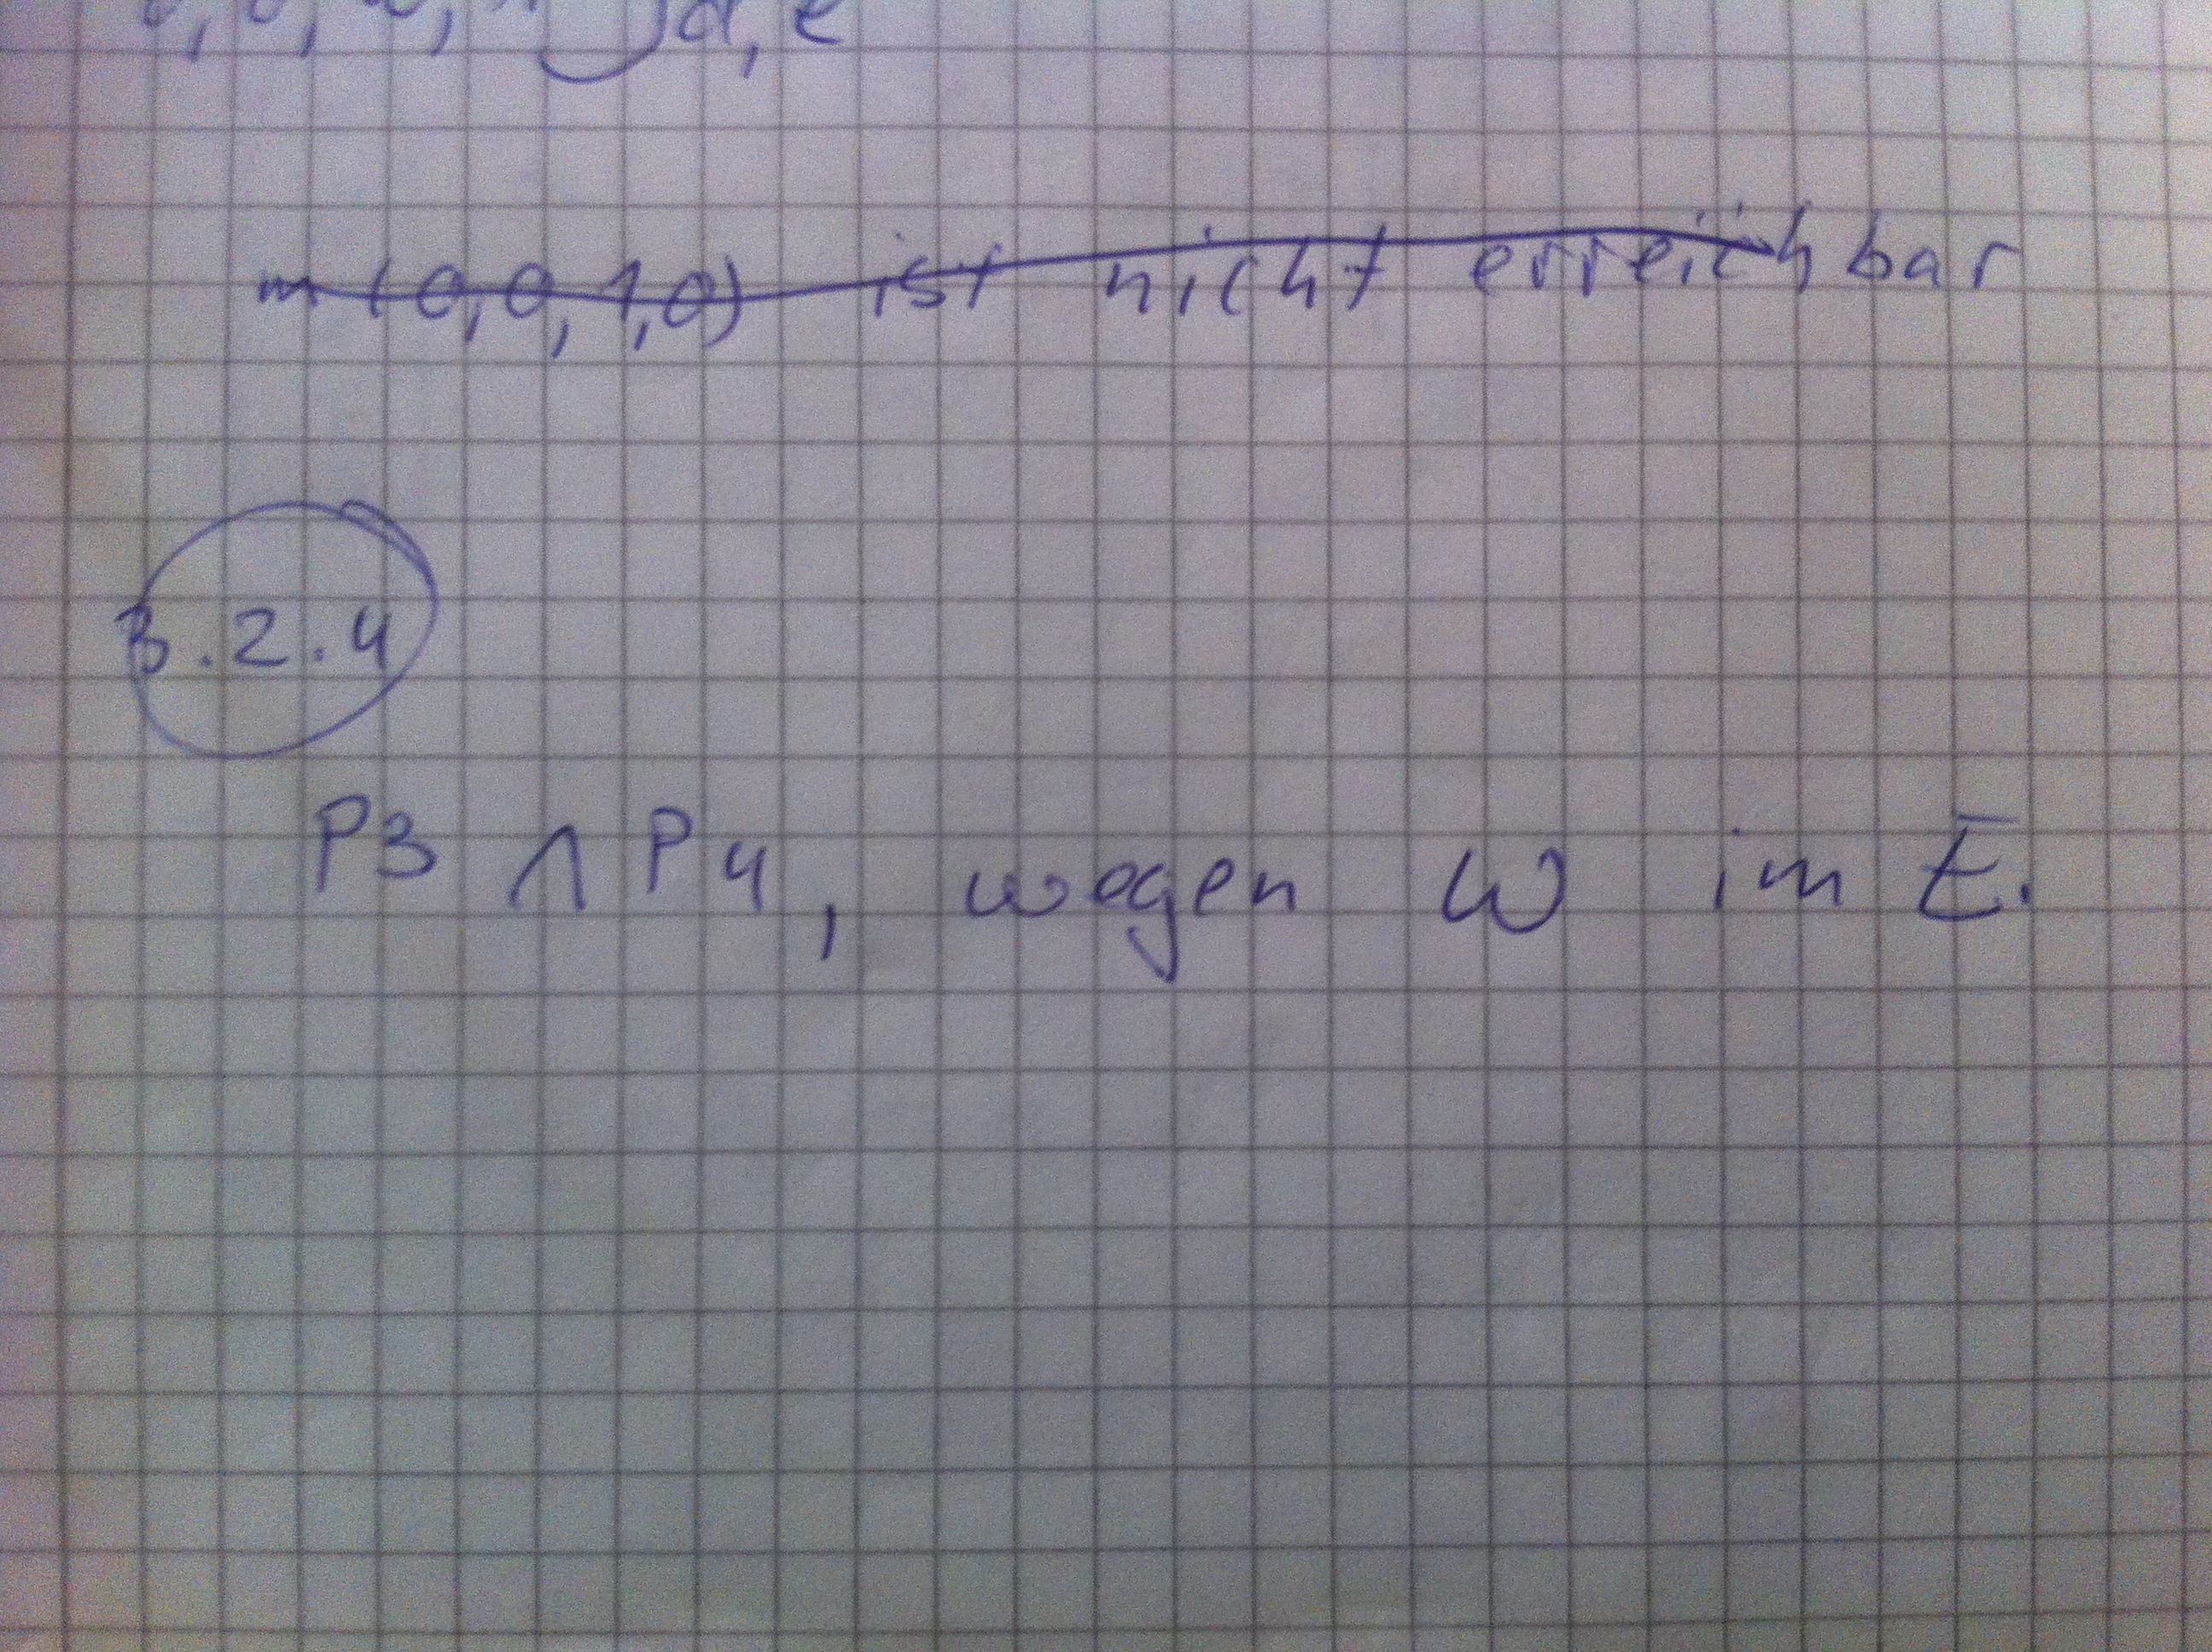 m (0,0,1,0) ist nicht erreichbar
3.2.4
P3 ∧ P4, wegen W im E.